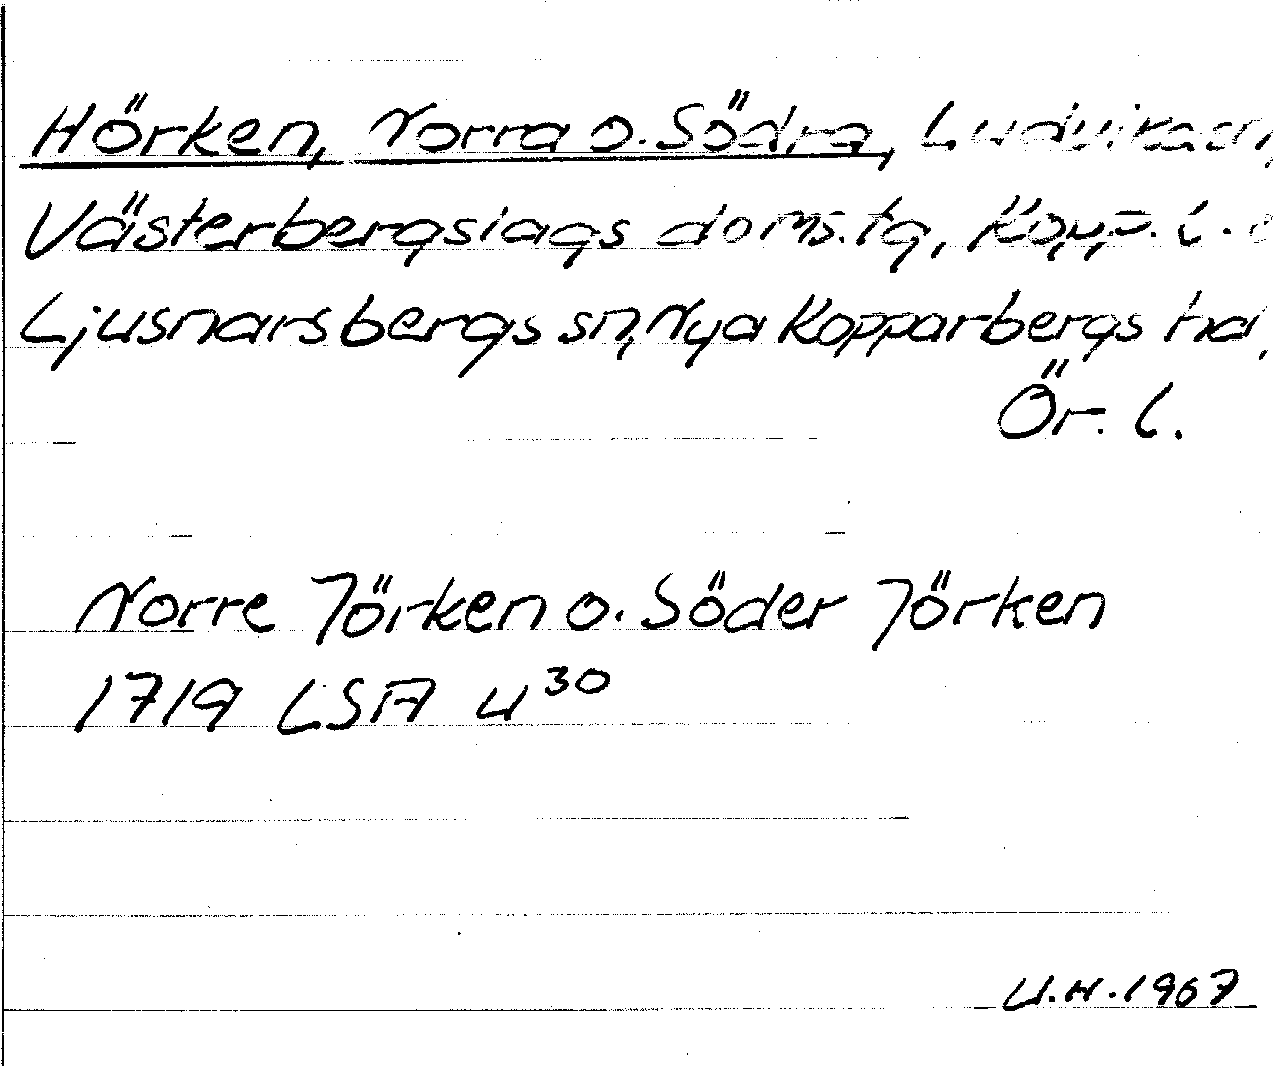 Hörken, Norra o. Södra, Ludvika sn,
Västerbergslags doms.tg, Kopp. l. o
Ljusnarsbergs sn, Nya Kopparbergs hd,
Ör. l.
Norre Jörken o. Söder Jörken
1719 LSA U³⁰
U.H. 1967